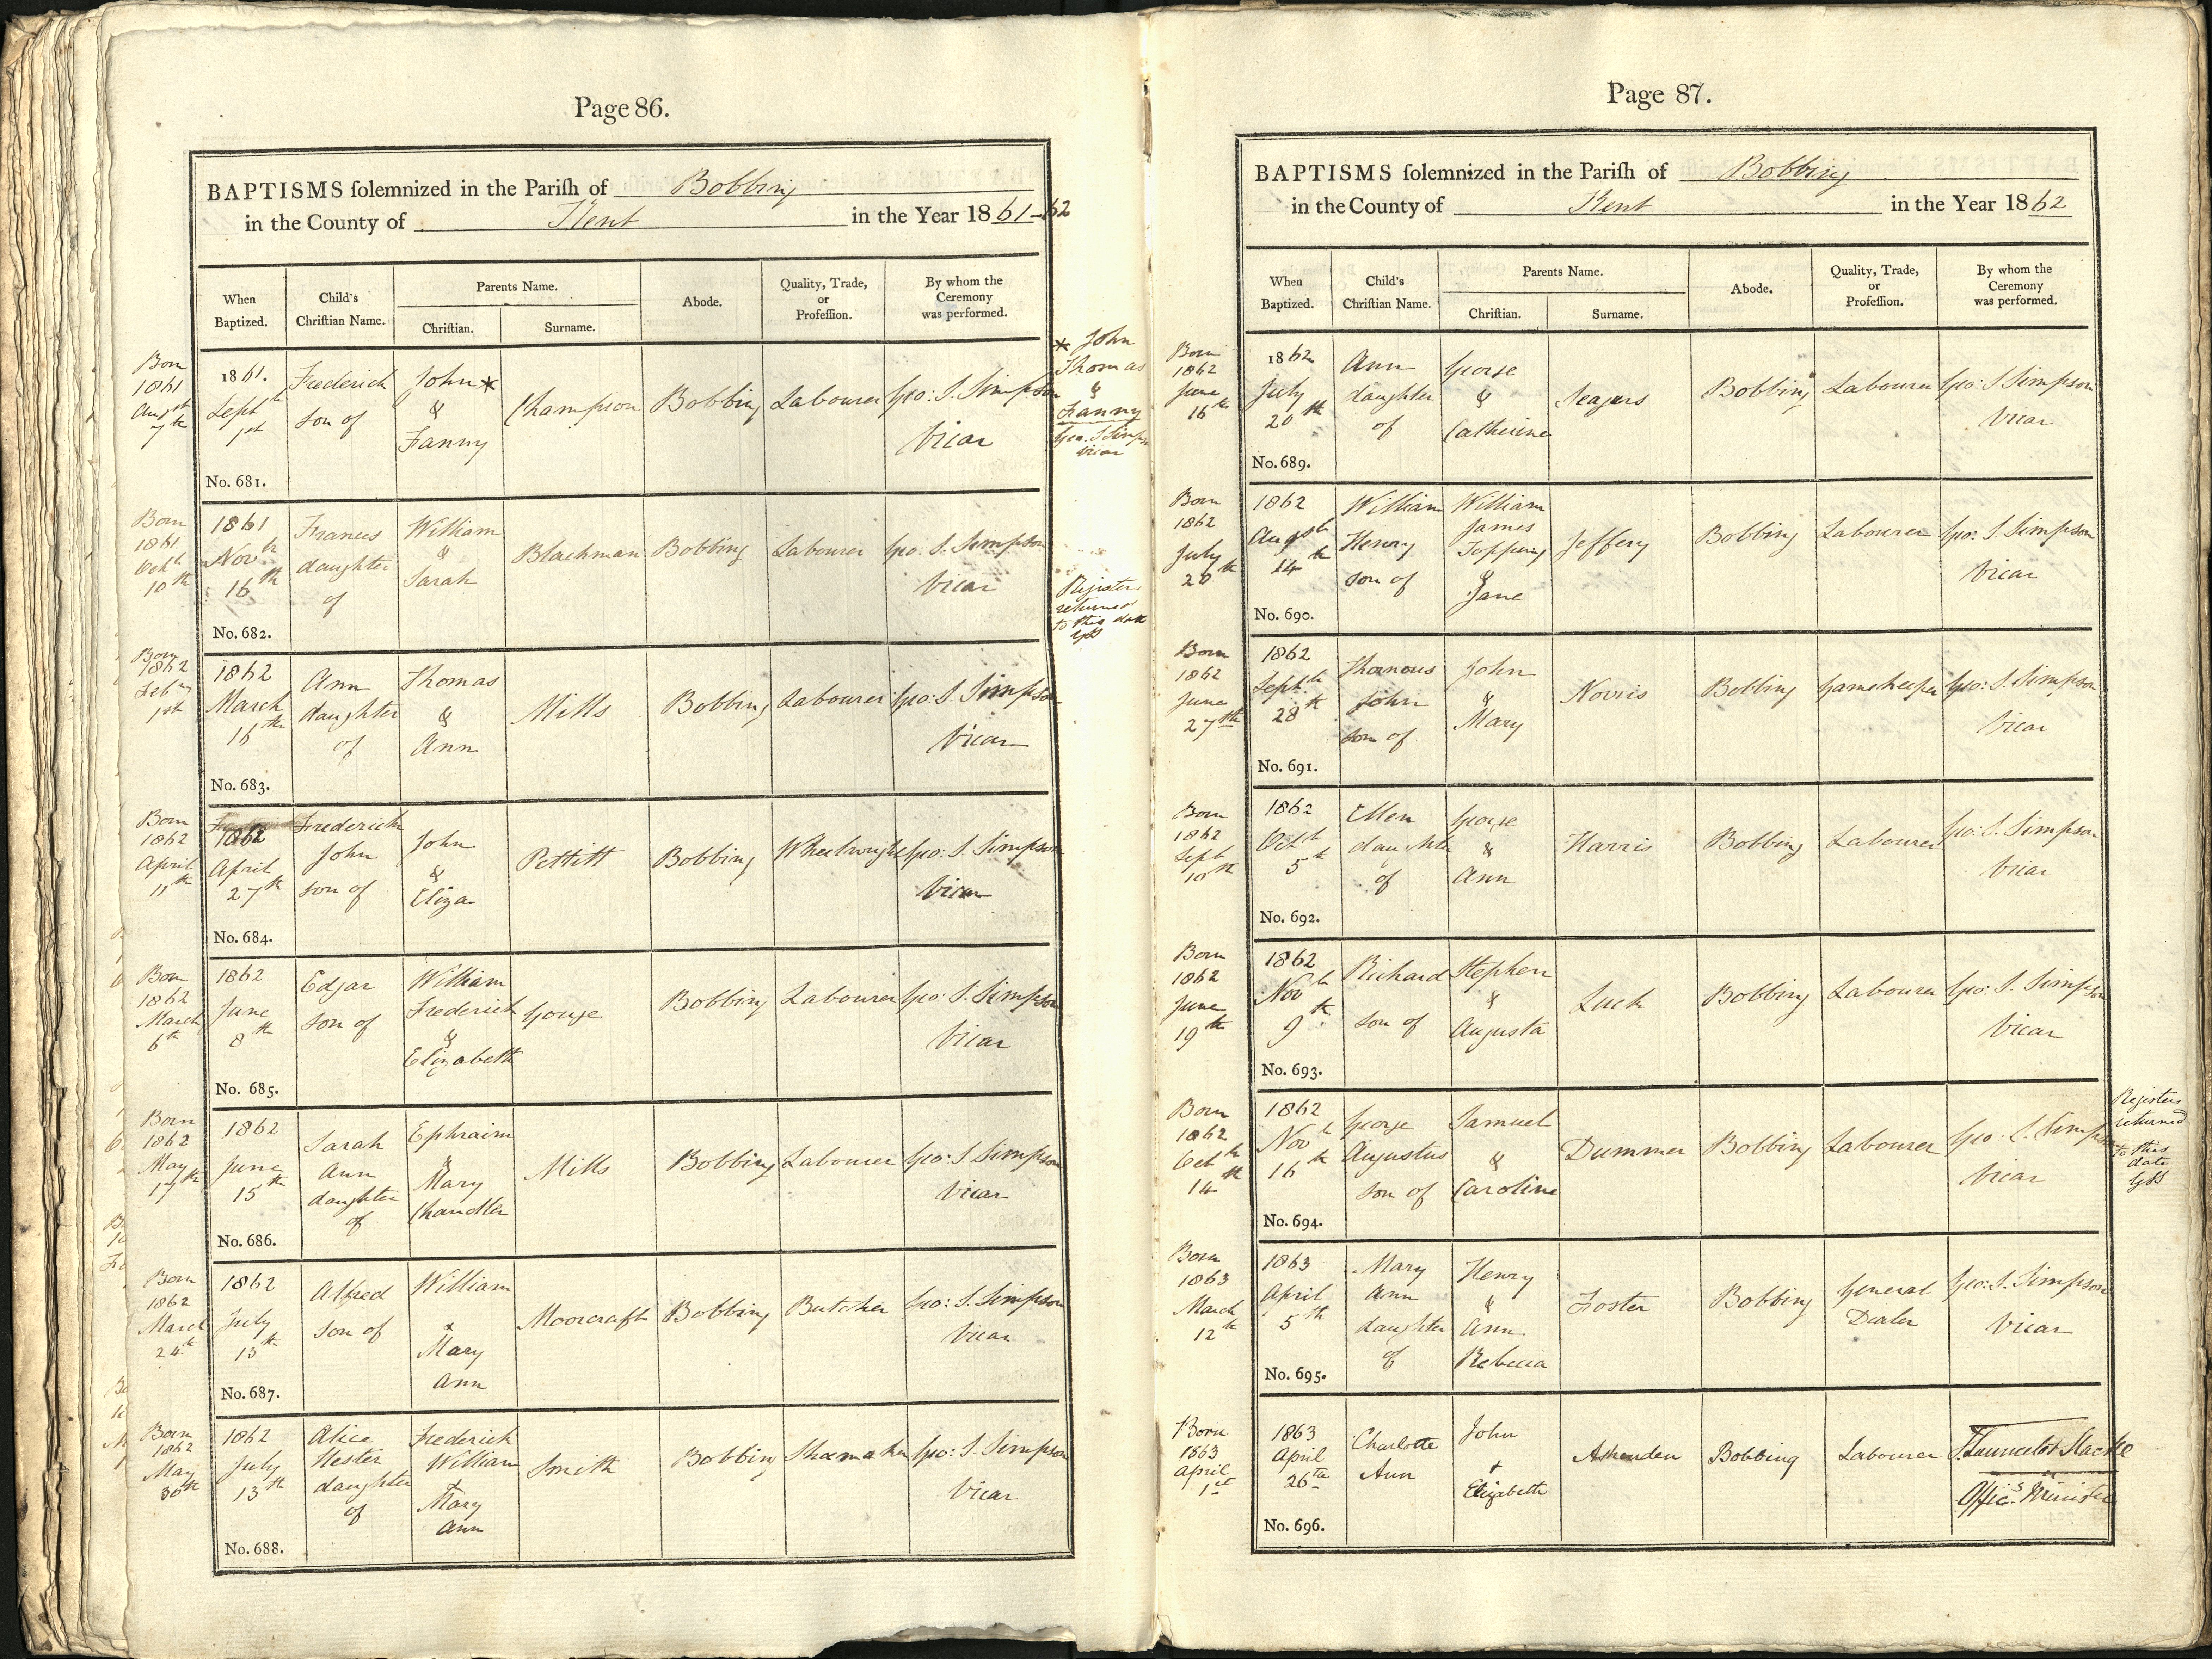 Page 86.
BAPTISMS ſolemnized in the Pariſh of Bobbing
in the County of Kent in the Year 1861-62
When Baptized.
Child's Chriſtian Name.
Parents Name.
Chriſtian.
Surname.
Abode.
Quality, Trade, or Profeſſion.
By whom the Ceremony was performed.
Born 1861 Augst 7th
1861. Septth 1st
Frederick son of
John* & Fanny
Champion
Bobbing
Labourer
Geo: S. Simpson Vicar
No. 681.
* John Thomas & Fanny
Geo. S Simpson Vicar
Born 1861 Octh 10th
1861 Novh 16th
Frances daughter of
William & Sarah
Blackman
Bobbing
Labourer
Geo: S. Simpson Vicar
No. 682.
Register returned to this date
Born 1862 Feby 1st
1862 March 16th
Ann daughter of
Thomas & Ann
Mills
Bobbing
Labourer
Geo: S. Simpson Vicar
No. 683.
Born 1862 April 11th
1862 April 27th
Frederick John son of
John & Eliza
Pettitt
Bobbing
Wheelwright
Geo: S. Simpson Vicar
No. 684.
Born 1862 March 6th
1862 June 8th
Edgar son of
William Frederick & Elizabeth
George
Bobbing
Labourer
Geo: S. Simpson Vicar
No. 685.
Born 1862 May 17th
1862 June 15th
Sarah Ann daughter of
Ephraim & Mary Chandler
Mills
Bobbing
Labourer
Geo: S Simpson Vicar
No. 686.
Born 1862 March 24th
1862 July 13th
Alfred son of
William & Mary Ann
Moorcraft
Bobbing
Butcher
Geo: S. Simpson Vicar
No. 687.
Born 1862 May 30th
1862 July 13th
Alice Hester daughter of
Frederick William & Mary Ann
Smith
Bobbing
Shoemaker
Geo: S. Simpson Vicar
No. 688.
Page 87.
BAPTISMS ſolemnized in the Pariſh of Bobbing
in the County of Kent in the Year 1862
When Baptized.
Child's Chriſtian Name.
Parents Name.
Chriſtian.
Surname.
Abode.
Quality, Trade, or Profeſſion.
By whom the Ceremony was performed.
Born 1862 June 16th
1862 July 20th
Ann daughter of
George & Catherine
Seagers
Bobbing
Labourer
Geo: S Simpson Vicar
No. 689.
Born 1862 July 20th
1862 Augsth 14th
William Henry son of
William James Topping & Jane
Jeffery
Bobbing
Labourer
Geo: S. Simpson Vicar
No. 690.
Born 1862 June 27th
1862 Septth 28th
John son of
John & Mary
Norris
Bobbing
Gamekeeper
Geo: S. Simpson Vicar
No. 691.
Born 1862 Sept 10th
1862 Octh 5th
Ellen daughter of
George & Ann
Harris
Bobbing
Labourer
Geo: S. Simpson Vicar
No. 692.
Born 1862 June 19th
1862 Novh 9th
Richard son of
Stephen & Augusta
Luck
Bobbing
Labourer
Geo: S. Simpson Vicar
No. 693.
Born 1862 Octh 14th
1862 Novh 16th
George Augustus son of
Samuel & Caroline
Dummer
Bobbing
Labourer
Geo: S. Simpson Vicar
No. 694.
Registers returned to this date
Born 1863 March 12th
1863 April 5th
Mary Ann daughter of
Henry & Ann Rebecca
Foster
Bobbing
General Dealer
Geo: S. Simpson Vicar
No. 695.
Born 1863 April 1st
1863 April 26th
Charlotte Ann
John & Elizabeth
Ashenden
Bobbing
Labourer
Offic.g Minister
No. 696.